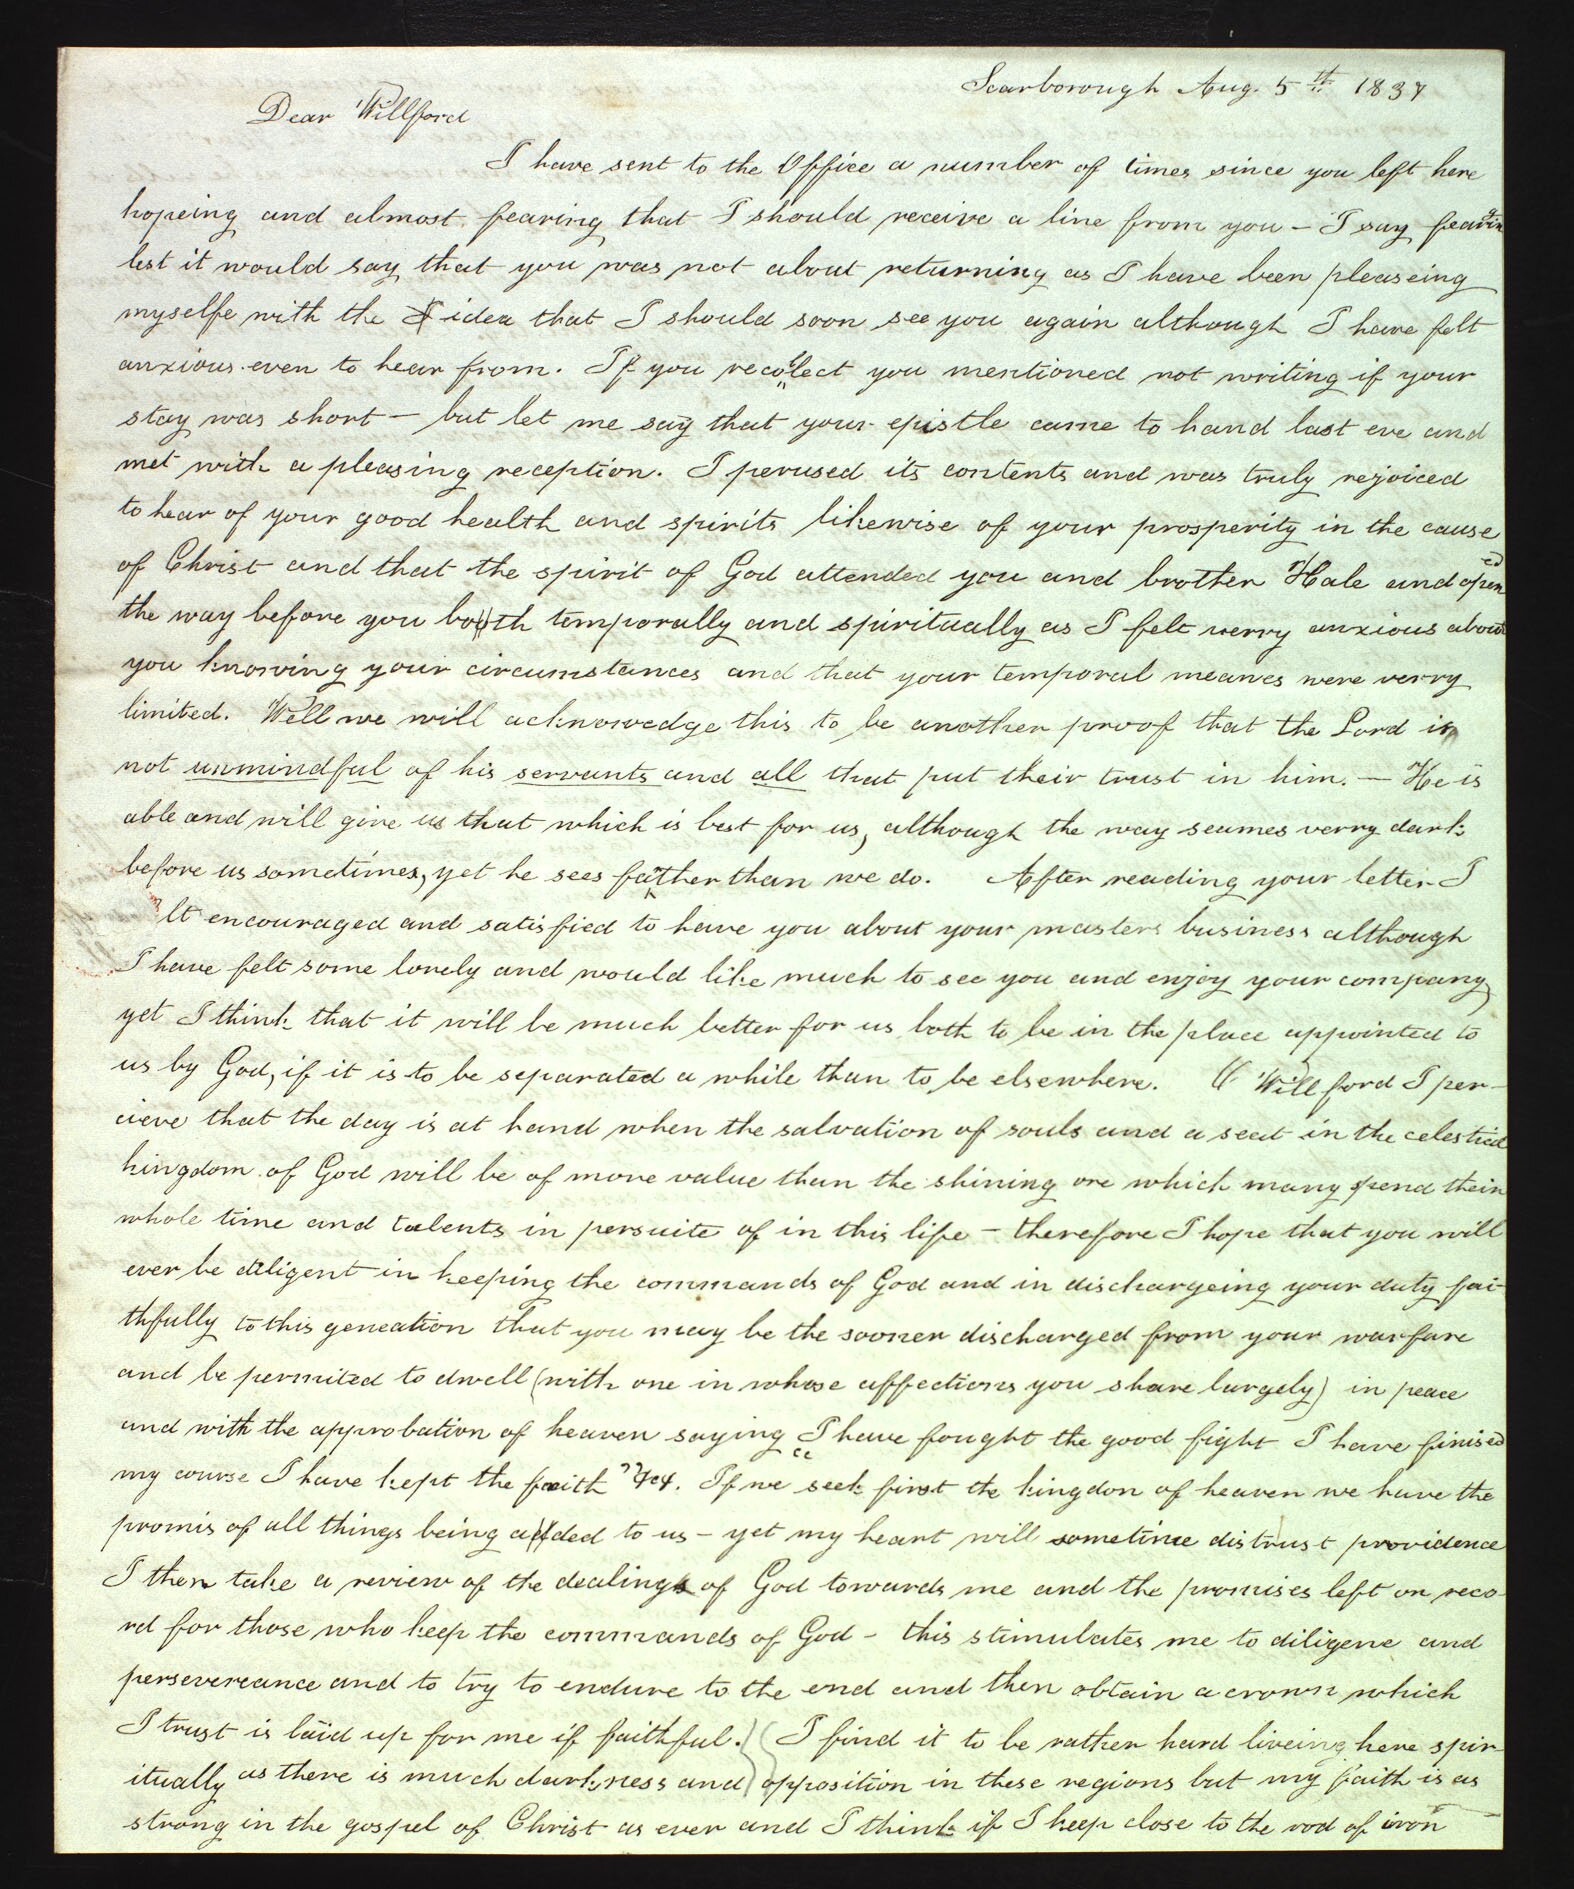 Scarborough Aug. 5th 1837
Dear Willford
I have sent to the Office a number of times since you left here
hopeing and almost fearing that I should receive a line from you – I say fearing
lest it would say that you was not about returning as I have been pleaseing
myselfe with the I idea that I should soon see you again although I have felt
anxious even to hear from. If you recollect you mentioned not writing if your
stay was short – but let me say that your epistle came to hand last eve and
met with a pleasing reception. I perused its contents and was truly rejoiced
to hear of your good health and spirits likewise of your prosperity in the cause
of Christ and that the spirit of God attended you and brother Hale and opened
the way before you both temporally and spiritually as I felt verry anxious about
you knowing your circumstances and that your temporal meanes were verry
limited. Well we will acknowedge this to be another proof that the Lord is
not unmindful of his servants and all that put their trust in him. – He is
able and will give us that which is best for us, although the way seames verry dark
before us sometimes, yet he sees farther than we do. After reading your letter I
lt encouraged and satisfied to have you about your masters business although
I have felt some lonely and would like much to see you and enjoy your company,
yet I think that it will be much better for us both to be in the place appointed to
us by God, if it is to be separated a while than to be elsewhere. Willford I per-
cieve that the day is at hand when the salvation of souls and a seat in the celestial
kingdom of God will be of more value than the shining ore which many spend their
whole time and talents in persuite of in this life – therefore I hope that you will
ever be diligent in keeping the commands of God and in dischargeing your duty fai-
thfully to this geneation that you may be the sooner discharged from your warfare
and be permited to dwell (with one in whose affections you share largely) in peace
and with the approbation of heaven saying "I have fought the good fight I have finised
my course I have kept the faith" &c. If we seek first the kingdon of heaven we have the
promis of all things being added to us – yet my heart will sometime distrust providence
I then take a review of the dealings of God towards me and the promises left on reco-
rd for those who keep the commands of God – this stimulates me to diligene and
persevereance and to try to endure to the end and then obtain a crown which
I trust is laid up for me if faithful.) (I find it to be rather hard liveing here spir-
itually as there is much darkness and opposition in these regions but my faith is as
strong in the gospel of Christ as ever and I think if I keep close to the rod of iron